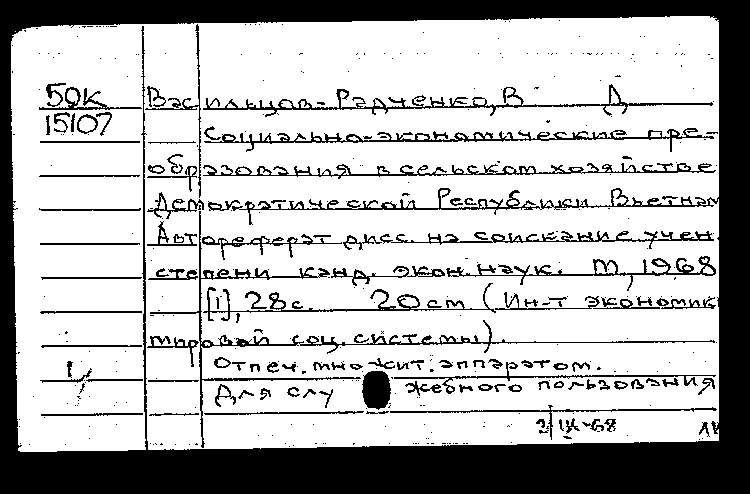 50к Васильцов-Радченко, В Д
15107
Социально-экономические пре-
образования в сельском хозяйстве
Демократической Республики Вьетнам
Автореферат дисс. на соискание учен.
степени канд. экон. наук. М, 1968
[1], 28с. 20 cm (Ин-т экономик
мировой соц. системы).
Отпеч. множит. аппаратом.
Для служебного пользования
2/IX-68